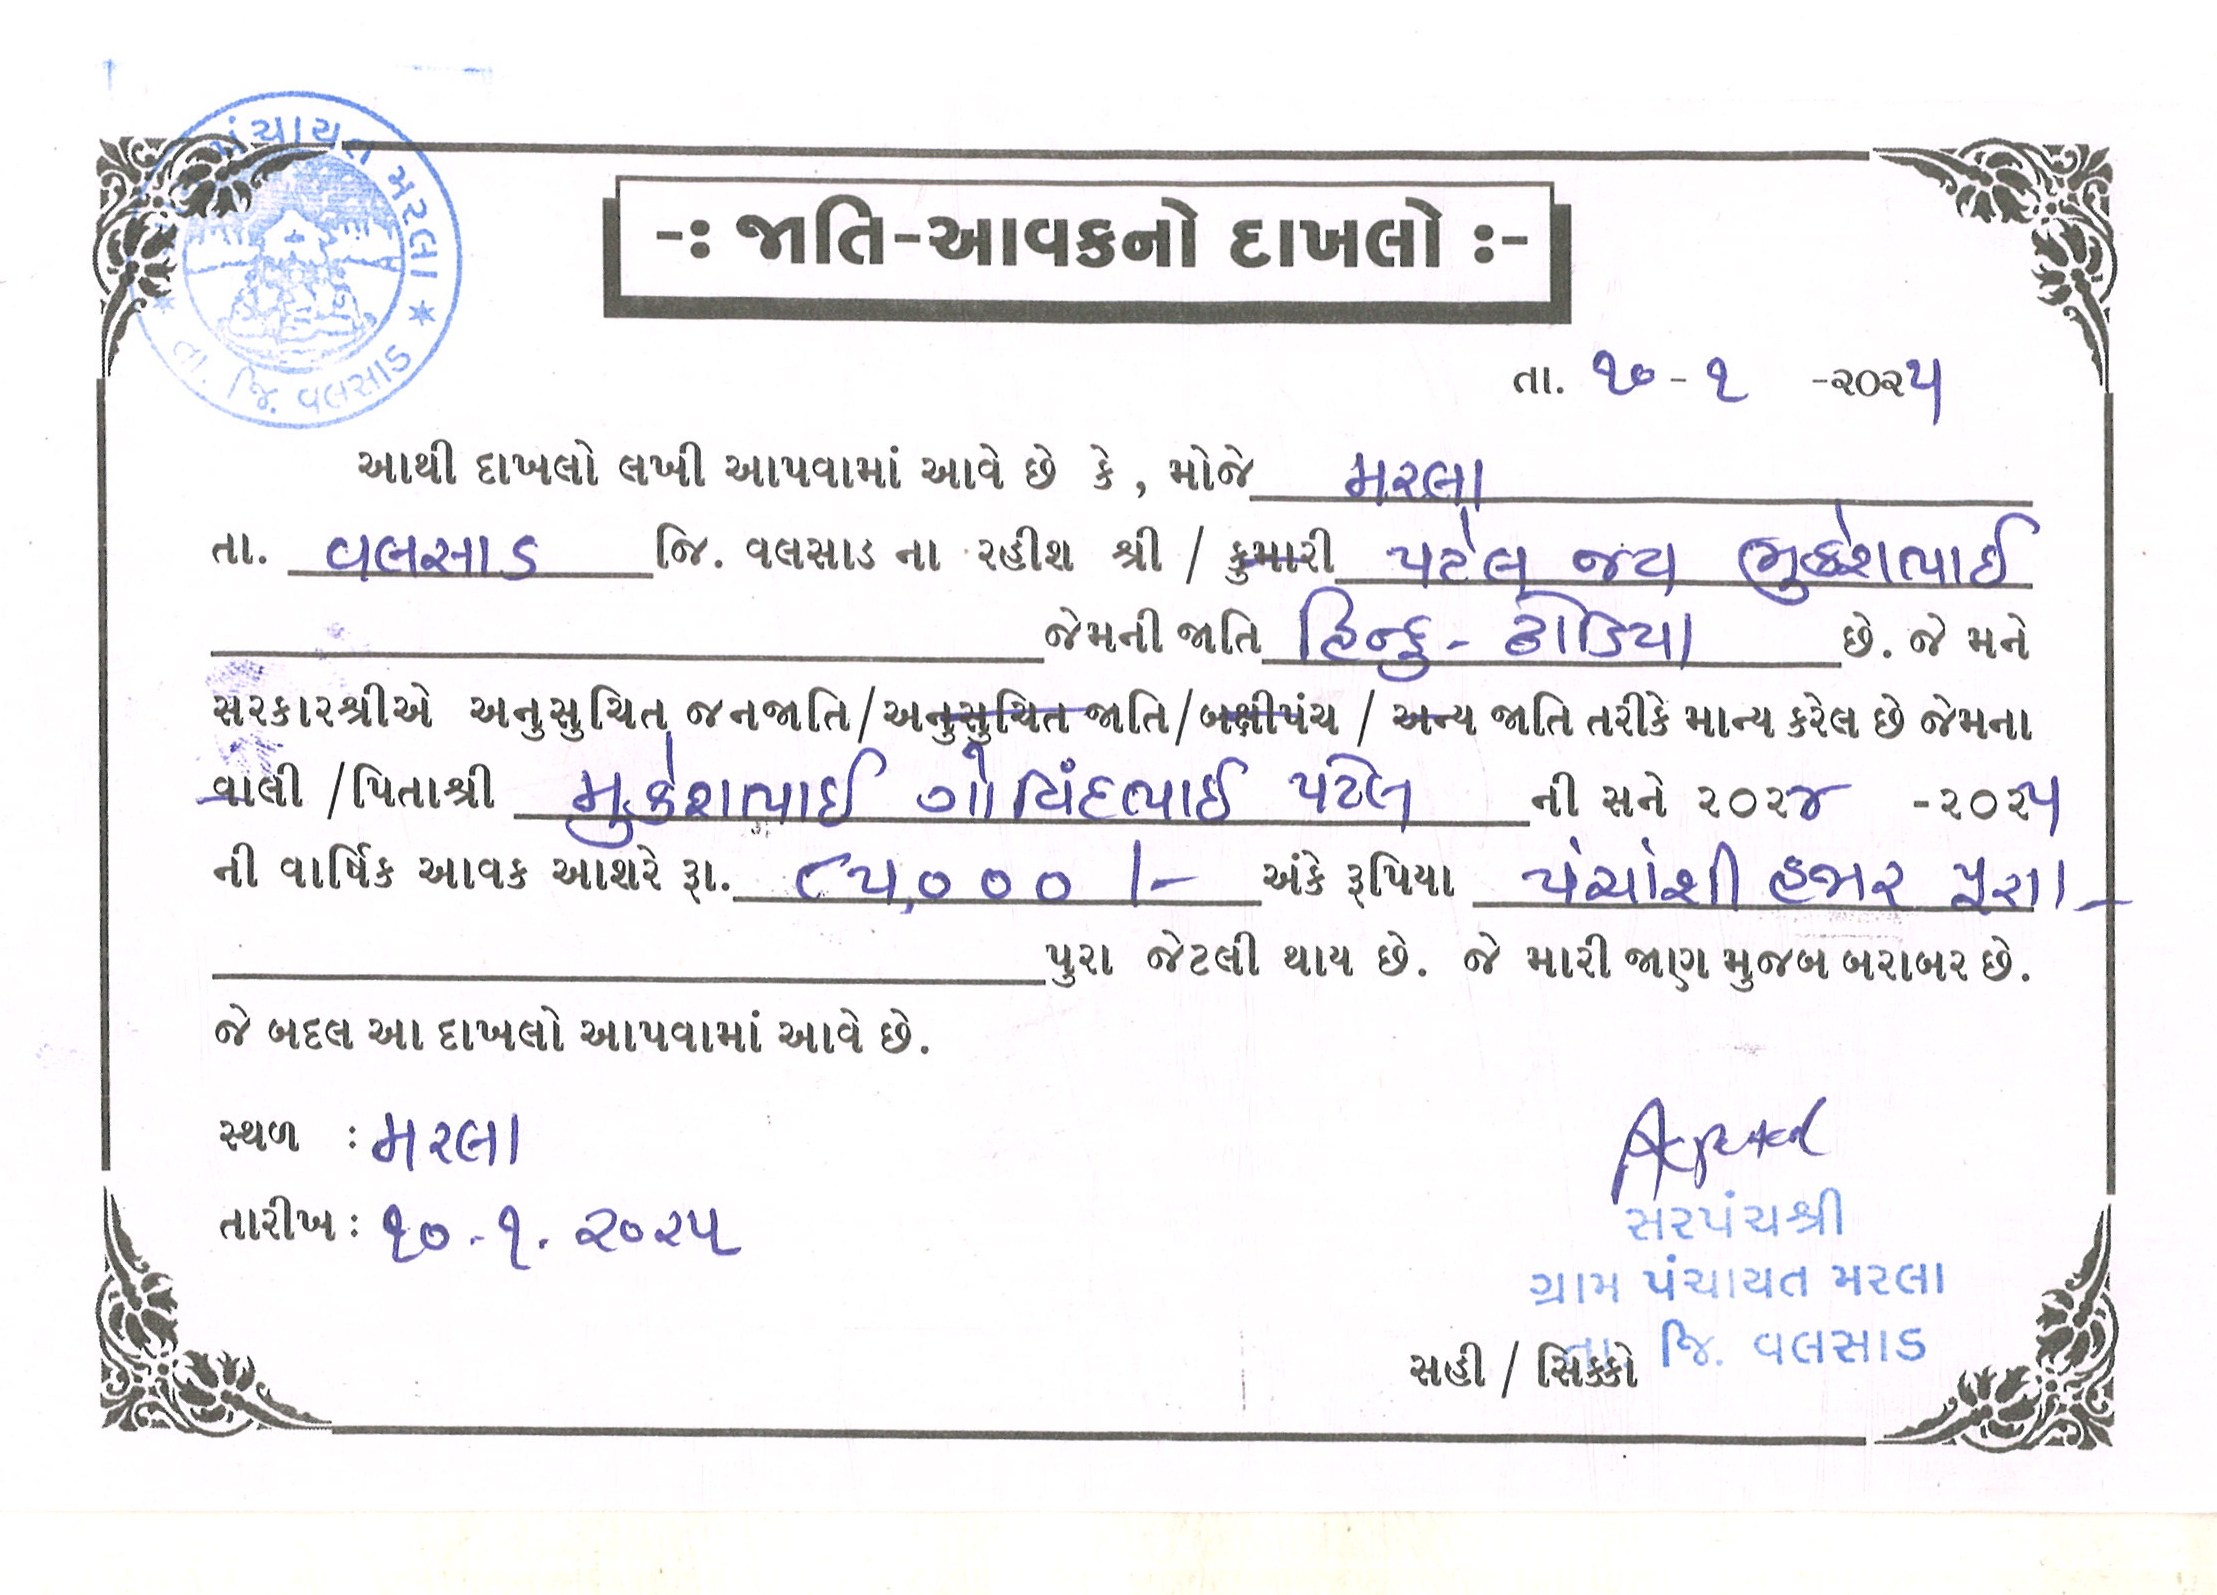 પંચાયત મરલા
તા. જિ. વલસાડ
-: જાતિ-આવકનો દાખલો :-
તા. ૧૦ - ૧ -૨૦૨૫
આથી દાખલો લખી આપવામાં આવે છે કે, મોજે મરલા
તા. વલસાડ જિ. વલસાડ ના રહીશ શ્રી / કુમારી પટેલ જય મુકેશભાઈ
જેમની જાતિ હિન્દુ - ઢોડિયા છે. જે મને
સરકારશ્રીએ અનુસુચિત જનજાતિ/અનુસુચિત જાતિ/બક્ષીપંચ / અન્ય જાતિ તરીકે માન્ય કરેલ છે જેમના
વાલી /પિતાશ્રી મુકેશભાઈ ગોવિંદભાઈ પટેલ ની સને ૨૦૨૪ -૨૦૨૫
ની વાર્ષિક આવક આશરે રૂા. ૮૫,૦૦૦ /- અંકે રૂપિયા પંચાંશી હજાર પૂરા/-
પુરા જેટલી થાય છે. જે મારી જાણ મુજબ બરાબર છે.
જે બદલ આ દાખલો આપવામાં આવે છે.
સ્થળ : મરલા
તારીખ : ૧૦ - ૧. ૨૦૨૫
સરપંચશ્રી
ગ્રામ પંચાયત મરલા
તા. જિ. વલસાડ
સહી / સિક્કો